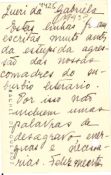 Querida Gabriela
Estas linhas foram
escritas muito antes
da estupida agres-
são das nossas
comadres do su-
burbio literario.
Por isso não
incluem umas
palavras de
desagravo, ener-
gicas e necessa-
rias. Felizmente